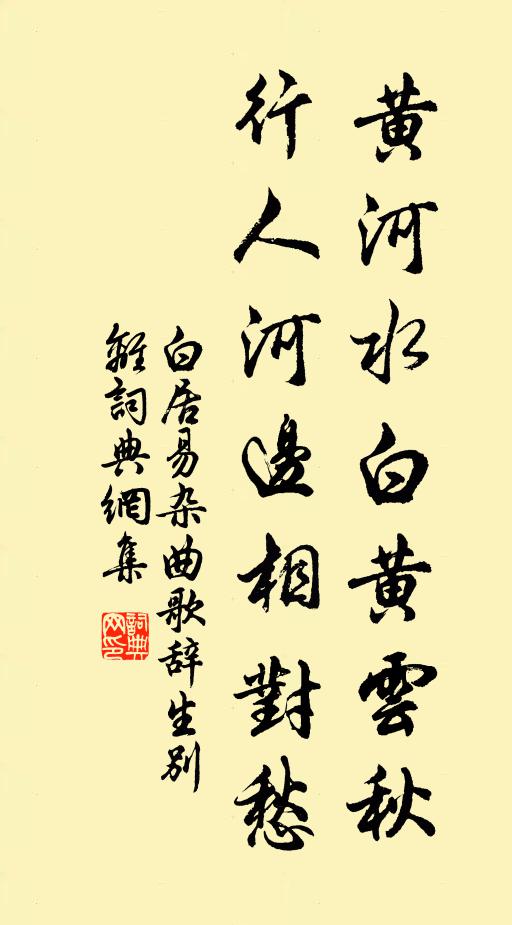 黄河水白黄雲秋
行人河邊相對愁
白居易杂曲歌辞生别
離詞典網集
詞典
网印